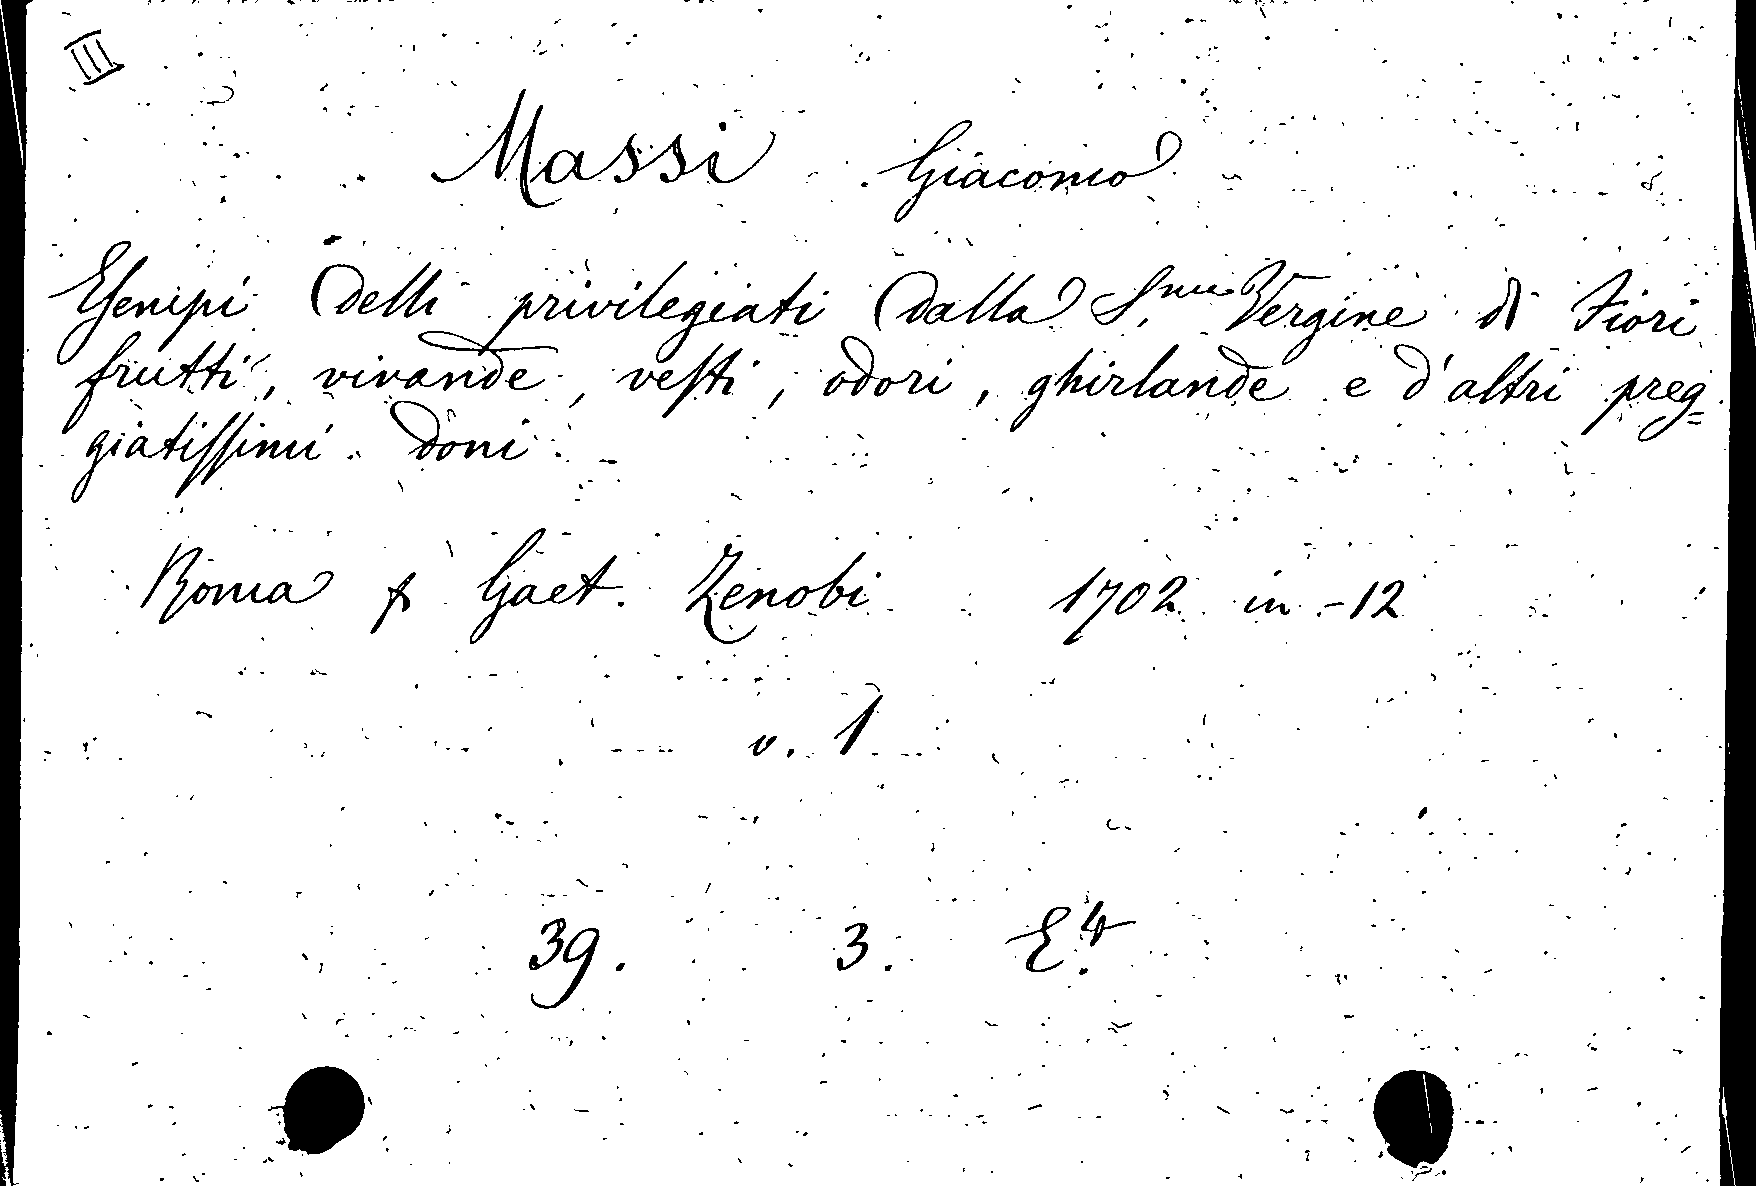 III
Massi Giacomo
Esempi delli privilegiati dalla S.ma Vergine di Fiori
frutti, vivande, vesti, odori, ghirlande e d'altri preg=
giatissimi doni
Roma p Gaet. Zenobi 1702 in-12
v. 1
39. 3. E.4